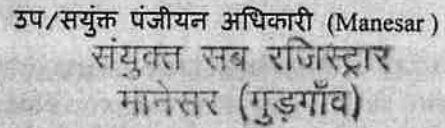 उप/सयुंक्त पंजीयन अधिकारी (Manesar)
संयुक्त सब रजिस्ट्रार
मानेसर (गुड़गाँव)